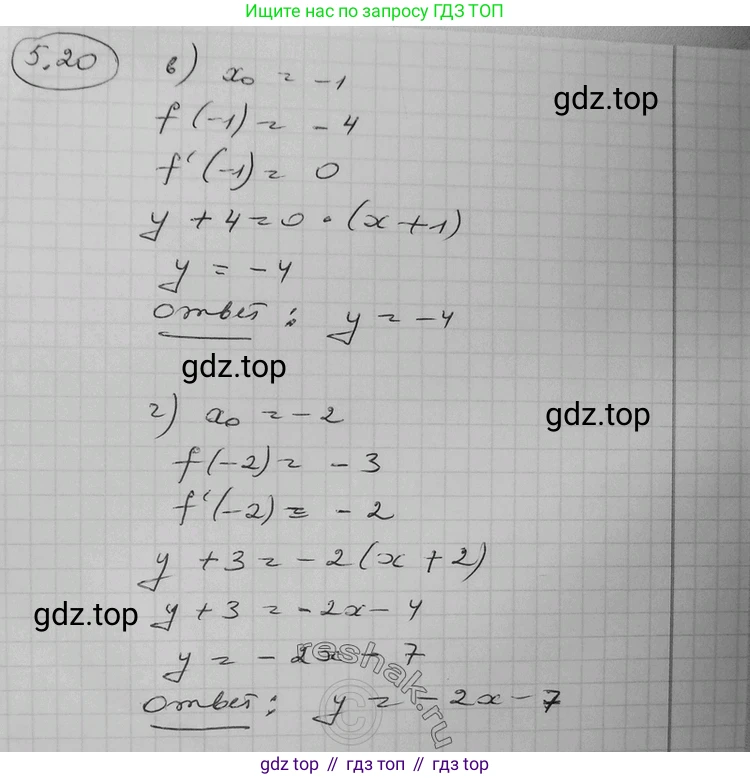 Ищите нас по запросу ГДЗ ТОП
5.20 в) x₀ = -1
gdz.top
f(-1) = -4
f'(-1) = 0
y + 4 = 0 · (x + 1)
y = -4
Ответ: y = -4
gdz.top
г) x₀ = -2
gdz.top
f(-2) = -3
f'(-2) = -2
y + 3 = -2(x + 2)
gdz.top
y + 3 = -2x - 4
y = -2x - 7
reshak.ru
Ответ: y = -2x - 7
gdz.top // гдз топ // gdz.top